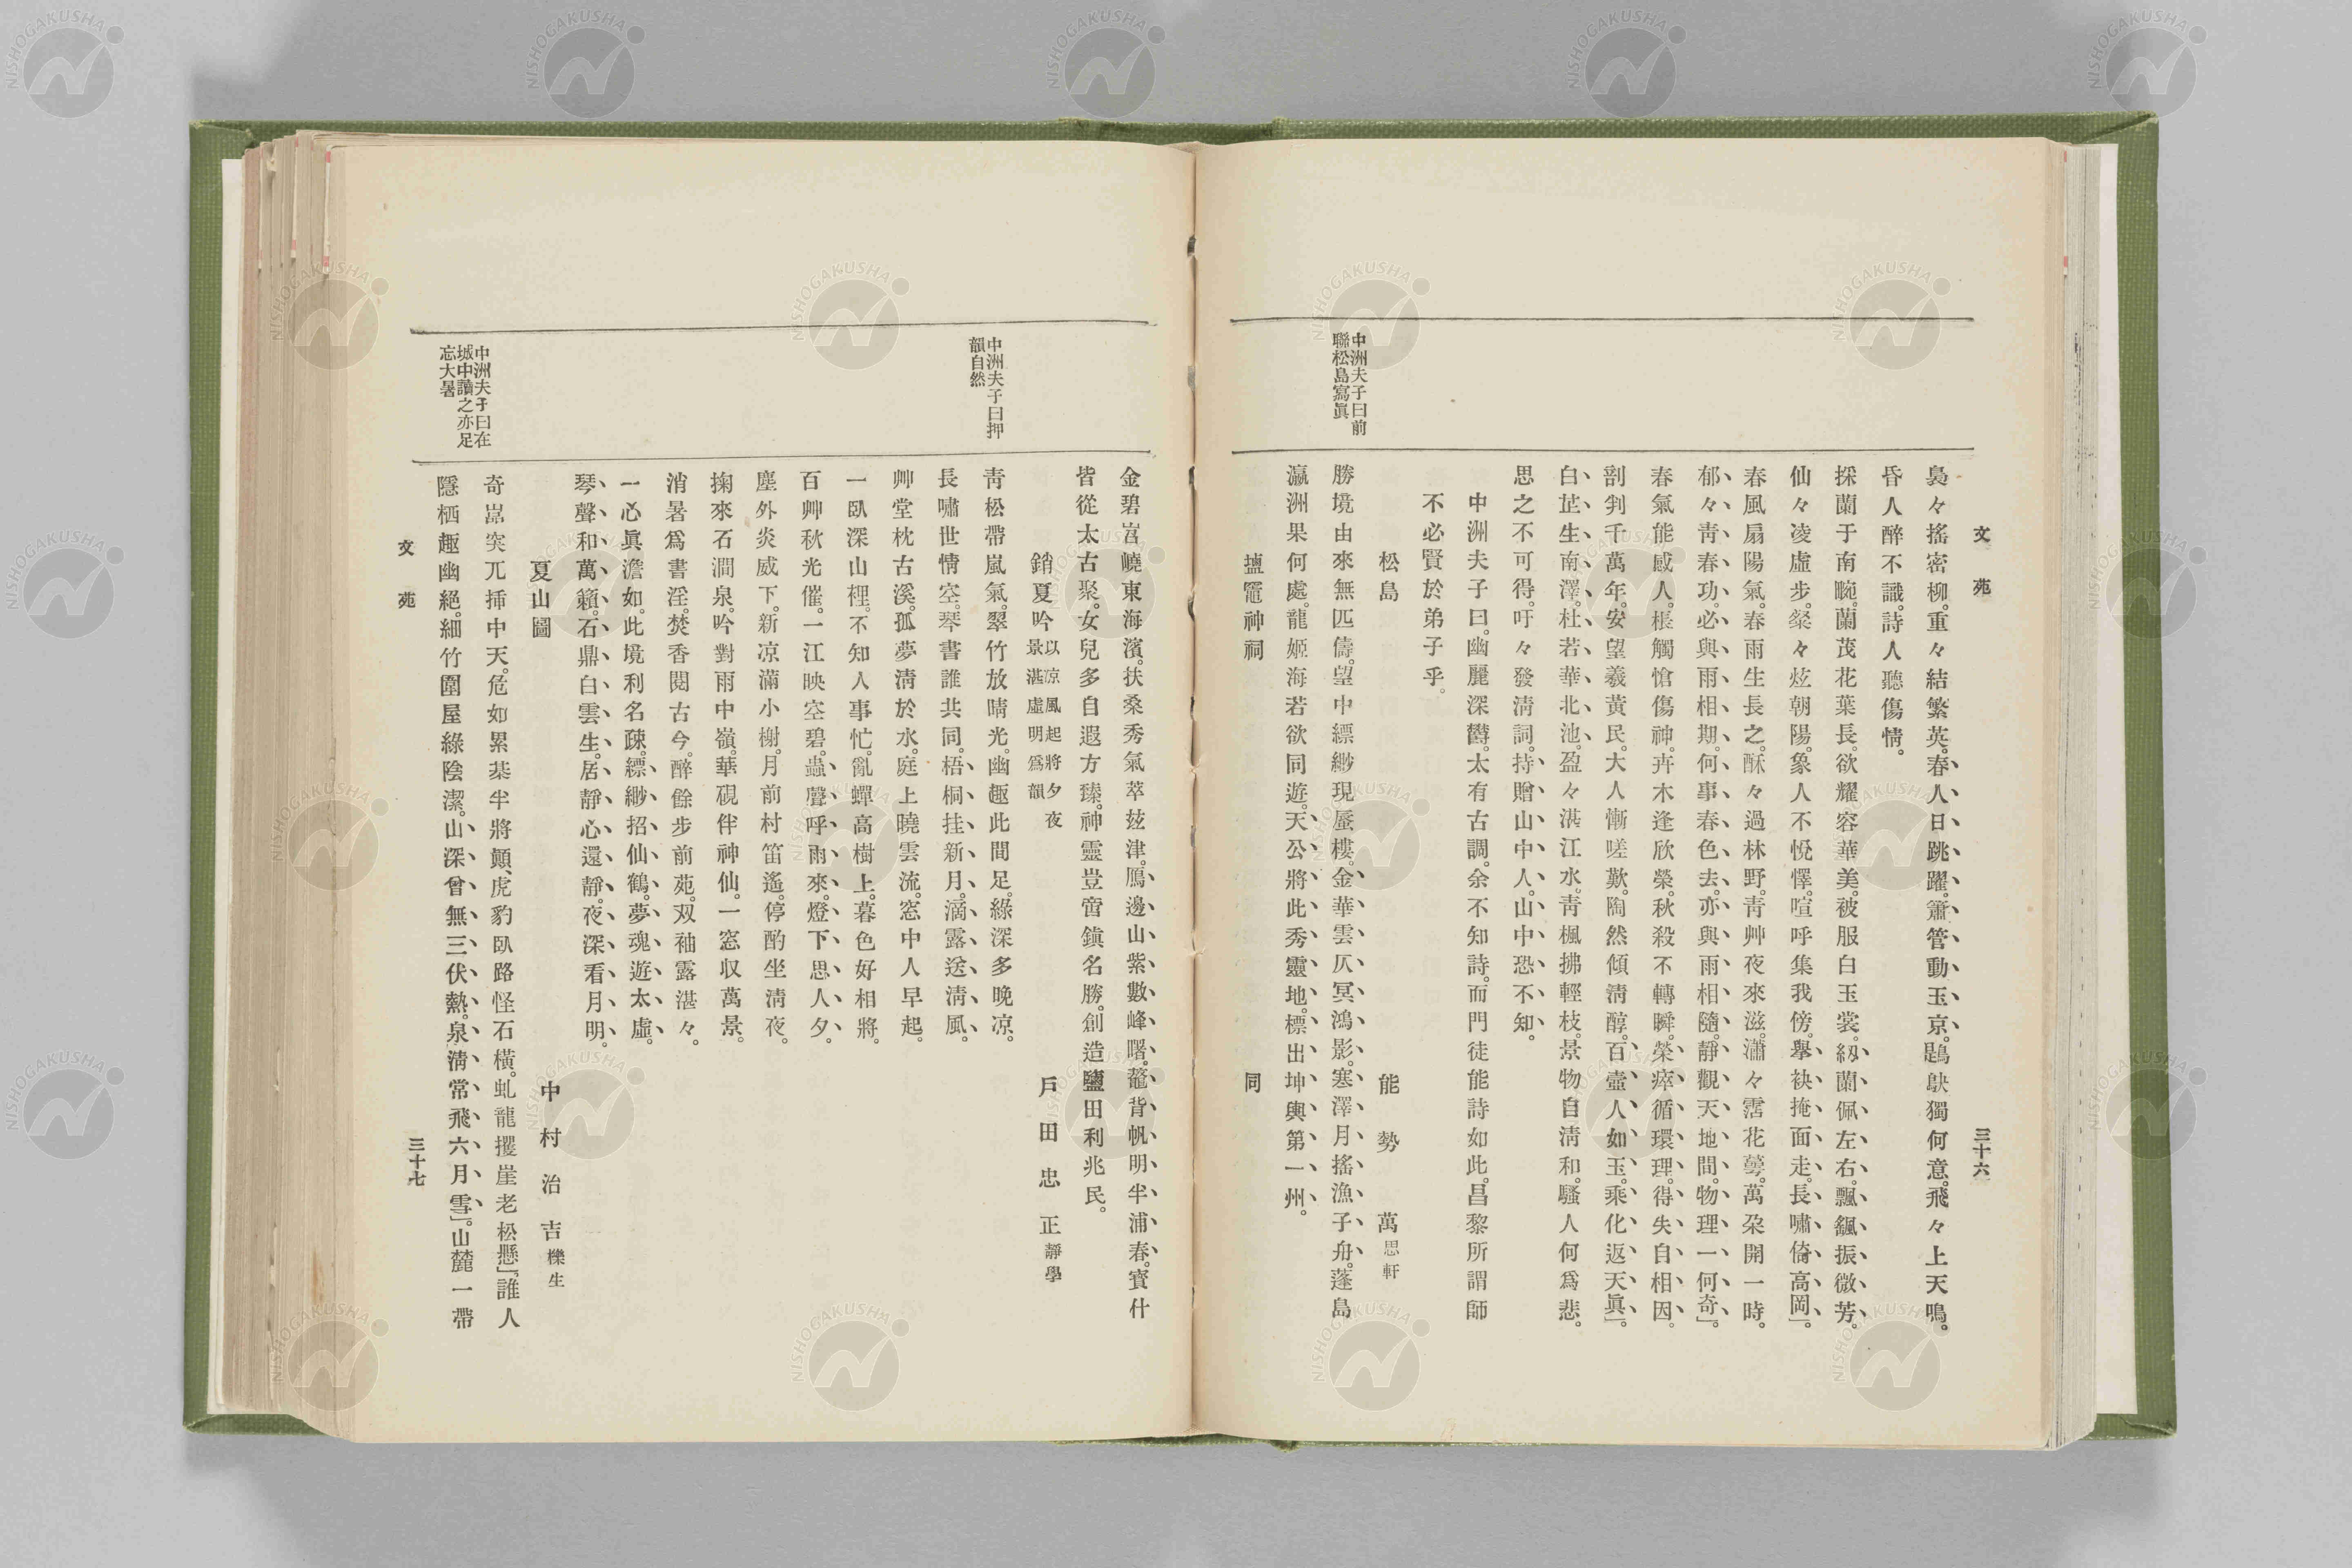 文苑
三十六
裊々搖密柳。重々結繁英。春人日跳躍。簫管動玉京。鶗鴃獨何意。飛々上天鳴。
昏人醉不識。詩人聽傷情。
採蘭于南畹。蘭茂花葉長。欲耀容華美。被服白玉裳。紉蘭佩左右。飄颻振微芳。
仙々凌虛步。粲々炫朝陽。象人不悅懌。喧呼集我傍。擧袂掩面走。長嘯倚高岡」。
春風扇陽氣。春雨生長之。酥々過林野。靑艸夜來滋。瀟々霑花蕚。萬朶開一時。
郁々靑春功。必與雨相期。何事春色去。亦與雨相隨。靜觀天地間。物理一何奇」。
春氣能感人。棖觸愴傷神。卉木逢欣榮。秋殺不轉瞬。榮瘁循環理。得失自相因。
剖判千萬年。安望羲黃民。大人慚嗟歎。陶然傾淸醇。百壺人如玉。乘化返天眞」。
白芷生南澤。杜若華北池。盈々湛江水。靑楓拂輕枝。景物自淸和。騷人何爲悲。
思之不可得。吁々發淸詞。持贈山中人。山中恐不知。
中洲夫子曰。幽麗深鬱。太有古調。余不知詩。而門徒能詩如此。昌黎所謂師
不必賢於弟子乎。
松島
能勢萬思軒
中洲夫子曰前
聯松島寫眞
勝境由來無匹儔。望中縹緲現蜃樓。金華雲仄冥鴻影。塞澤月搖漁子舟。蓬島
瀛洲果何處。龍姬海若欲同遊。天公將此秀靈地。標出坤輿第一州。
塩竈神祠
同
金碧岧嶢東海濱。扶桑秀氣萃玆津。鴈邊山紫數峰曙。鼇背帆明半浦春。賓什
皆從太古聚。女兒多自遐方臻。神靈豈啻鎭名勝。創造鹽田利兆民。
銷夏吟
以凉風起將夕夜
景湛虛明爲韻
戶田忠正靜學
中洲夫子曰押
韻自然
靑松帶嵐氣。翠竹放晴光。幽趣此間足。綠深多晩凉。
長嘯世情空。琴書誰共同。梧桐挂新月。滴露送淸風。
艸堂枕古溪。孤夢淸於水。庭上曉雲流。窓中人早起。
一臥深山裡。不知人事忙。亂蟬高樹上。暮色好相將。
百艸秋光催。一江映空碧。蟲聲呼雨來。燈下思人夕。
塵外炎威下。新凉滿小榭。月前村笛遙。停酌坐淸夜。
掬來石澗泉。吟對雨中嶺。華硯伴神仙。一窓収萬景。
消暑爲書淫。焚香閱古今。醉餘步前苑。双袖露湛々。
一心眞澹如。此境利名疎。縹緲招仙鶴。夢魂遊太虛。
琴聲和萬籟。石鼎白雲生。居靜心還靜。夜深看月明。
夏山圖
中村治吉櫟生
中洲夫子曰在
城中讀之亦足
忘大暑
奇嵓突兀揷中天。危如累棊半將顚、虎豹臥路怪石橫。虬龍攫崖老松懸」。誰人
隱栖趣幽絕。細竹圍屋綠陰潔。山深曾無三伏熱。泉淸常飛六月雪」。山麓一帶
文苑
三十七